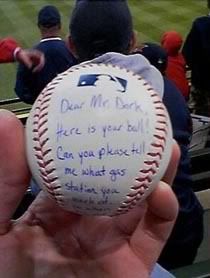 Dear Mr. Dork,
Here is your ball!
Can you please tell
me what gas
station you
work at